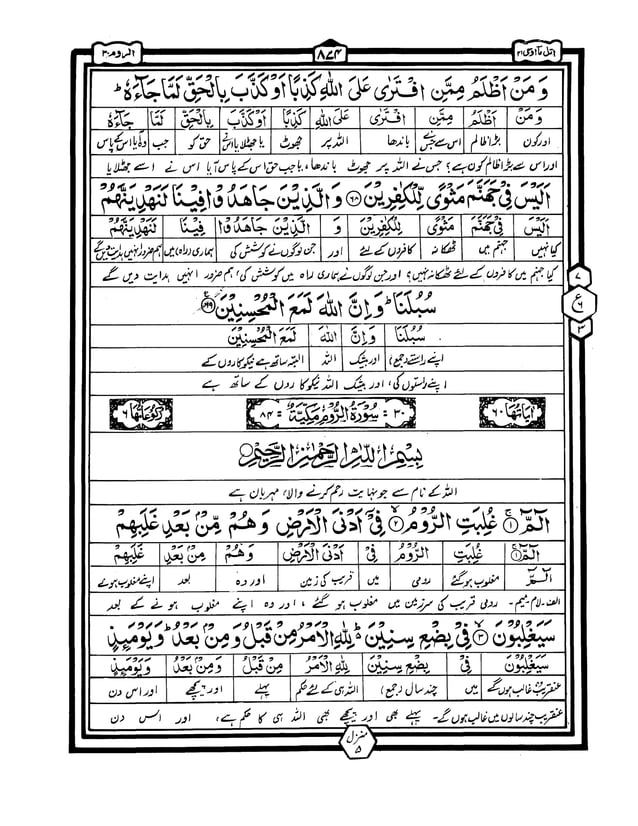 اتل مآ اوحی ۲۱ ۸۷۴ الروم ۳۰
وَمَنْ اَظْلَمُ مِمَّنِ افْتَرٰى عَلَى اللّٰهِ كَذِبًا اَوْ كَذَّبَ بِالْحَقِّ لَمَّا جَآءَهٗ ؕ
وَمَنْ اَظْلَمُ مِمَّنِ افْتَرٰى عَلَى اللّٰهِ كَذِبًا اَوْ كَذَّبَ بِالْحَقِّ لَمَّا جَآءَهٗ
اور کون بڑا ظالم اس سے جس نے باندھا اللہ پر جھوٹ یا جھٹلایا اس نے حق کو جب وہ آیا اس کے پاس
اور اس سے بڑا ظالم کون ہے؟ جس نے اللہ پر جھوٹ باندھا، یا جب حق اس کے پاس آیا اس نے اسے جھٹلایا
اَلَيْسَ فِيْ جَهَنَّمَ مَثْوًى لِّلْكٰفِرِيْنَ ﴿۶۸﴾ وَالَّذِيْنَ جَاهَدُوْا فِيْنَا لَنَهْدِيَنَّهُمْ
اَلَيْسَ فِيْ جَهَنَّمَ مَثْوًى لِّلْكٰفِرِيْنَ وَ الَّذِيْنَ جَاهَدُوْا فِيْنَا لَنَهْدِيَنَّهُمْ
کیا نہیں جہنم میں ٹھکانہ کافروں کے لئے اور جن لوگوں نے کوشش کی ہماری (راہ) میں ہم ضرور انہیں ہدایت دیں گے
کیا جہنم میں کافروں کے لئے ٹھکانہ نہیں؟ اور جن لوگوں نے ہماری راہ میں کوشش کی، ہم ضرور انہیں ہدایت دیں گے
سُبُلَنَا ؕ وَاِنَّ اللّٰهَ لَمَعَ الْمُحْسِنِيْنَ ﴿۶۹﴾
سُبُلَنَا وَاِنَّ اللّٰهَ لَمَعَ الْمُحْسِنِيْنَ
اپنے راستے (جمع) اور بیشک اللہ البتہ ساتھ ہے نیکوکاروں کے
اپنے راستوں کی، اور بیشک اللہ نیکوکاروں کے ساتھ ہے
۷ ع ۶ ۳
اٰيَاتُهَا ۶۰ ۳۰= سُوْرَةُ الرُّوْمِ مَكِّيَّةٌ =۸۴ رُكُوْعَاتُهَا ۶
بِسْمِ اللّٰهِ الرَّحْمٰنِ الرَّحِيْمِ
اللہ کے نام سے جو نہایت رحم کرنے والا، مہربان ہے
الٓمّٓ ﴿۱﴾ غُلِبَتِ الرُّوْمُ ﴿۲﴾ فِيْٓ اَدْنَى الْاَرْضِ وَهُمْ مِّنْۢ بَعْدِ غَلَبِهِمْ
الٓمّٓ ﴿۱﴾ غُلِبَتِ الرُّوْمُ فِيْٓ اَدْنَى الْاَرْضِ وَهُمْ مِّنْۢ بَعْدِ غَلَبِهِمْ
الٓمّٓ مغلوب ہو گئے رومی میں قریب کی زمین اور وہ بعد اپنے مغلوب ہونے
الف۔لام۔میم۔ رومی قریب کی سرزمین میں مغلوب ہو گئے، اور وہ اپنے مغلوب ہونے کے بعد
سَيَغْلِبُوْنَ ﴿۳﴾ فِيْ بِضْعِ سِنِيْنَ ؕ لِلّٰهِ الْاَمْرُ مِنْ قَبْلُ وَمِنْۢ بَعْدُ ؕ وَيَوْمَئِذٍ
سَيَغْلِبُوْنَ فِيْ بِضْعِ سِنِيْنَ لِلّٰهِ الْاَمْرُ مِنْ قَبْلُ وَمِنْۢ بَعْدُ وَيَوْمَئِذٍ
عنقریب غالب ہوں گے میں چند سال (جمع) اللہ ہی کے لئے حکم پہلے اور پیچھے اور اس دن
عنقریب چند سالوں میں غالب ہوں گے۔ پہلے بھی اور پیچھے بھی اللہ ہی کا حکم ہے، اور اس دن
منزل ۵